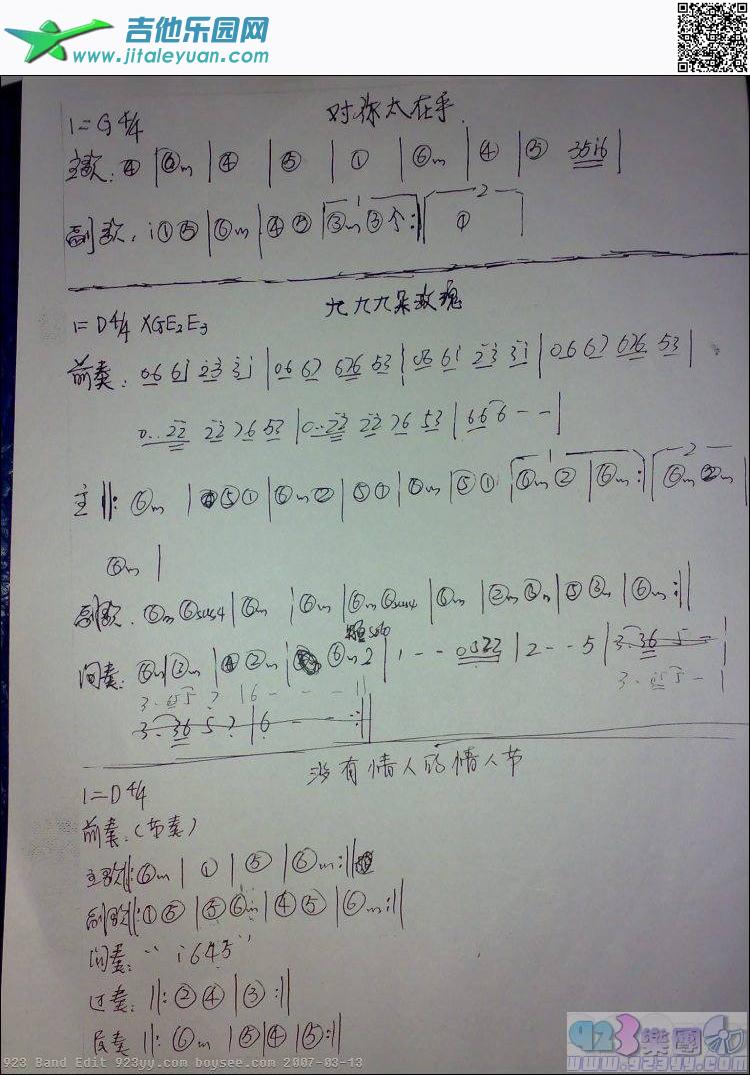 吉他乐园网
www.jitaleyuan.com
对你太在乎
1=G 4/4
主歌: ④ | ⑥m | ④ | ⑤ | ① | ⑥m | ④ | ⑤ 35i6 |
副歌: i ① ⑤ | ⑥m | ④ ⑤ | ③m ③ :| ①
1
2
九九九朵玫瑰
1=D 4/4 XGE2E3
前奏: 06 6i 23 3i | 06 67 676 53 | 06 6i 23 3i | 06 67 676 53 |
0..22 22 76 53 | 0..22 22 76 53 | 6 6 6 - - |
1
2
主 ||: ⑥m | ④ ⑤ ① | ⑥m ② | ⑤ ① | ⑥m | ⑤ ① | ⑥m ② | ⑥m :| ⑥m ②m |
⑥m |
副歌. ⑥m ⑥sus4 | ⑥m | ⑥m | ⑥m ⑥sus4 | ⑥m | ②m ③m | ⑤ ③m | ⑥m :||
solo
间奏: ⑥m | ③m | ④ ②m | ⑥m 2 | 1 - - 0322 | 2 - - 5 | 3. 36 5 - |
3. 5 5 - |
3. 5 5 7 | 6 - - - ||
3. 36 5 7 | 6 - - - :||
没有情人的情人节
1=D 4/4
前奏: (节奏)
主歌||: ⑥m | ① | ⑤ | ⑥m :||
副歌||: ① ⑤ | ⑤ ⑥m | ④ ⑤ | ⑥m :||
间奏: “ i 645 ”
过奏: ||: ② ④ | ③ :||
尾奏 ||: ⑥m | ⑤ | ④ | ⑤ :||
923樂團
www.923yy.com
923 Band Edit 923yy.com boysee.com 2007-03-13